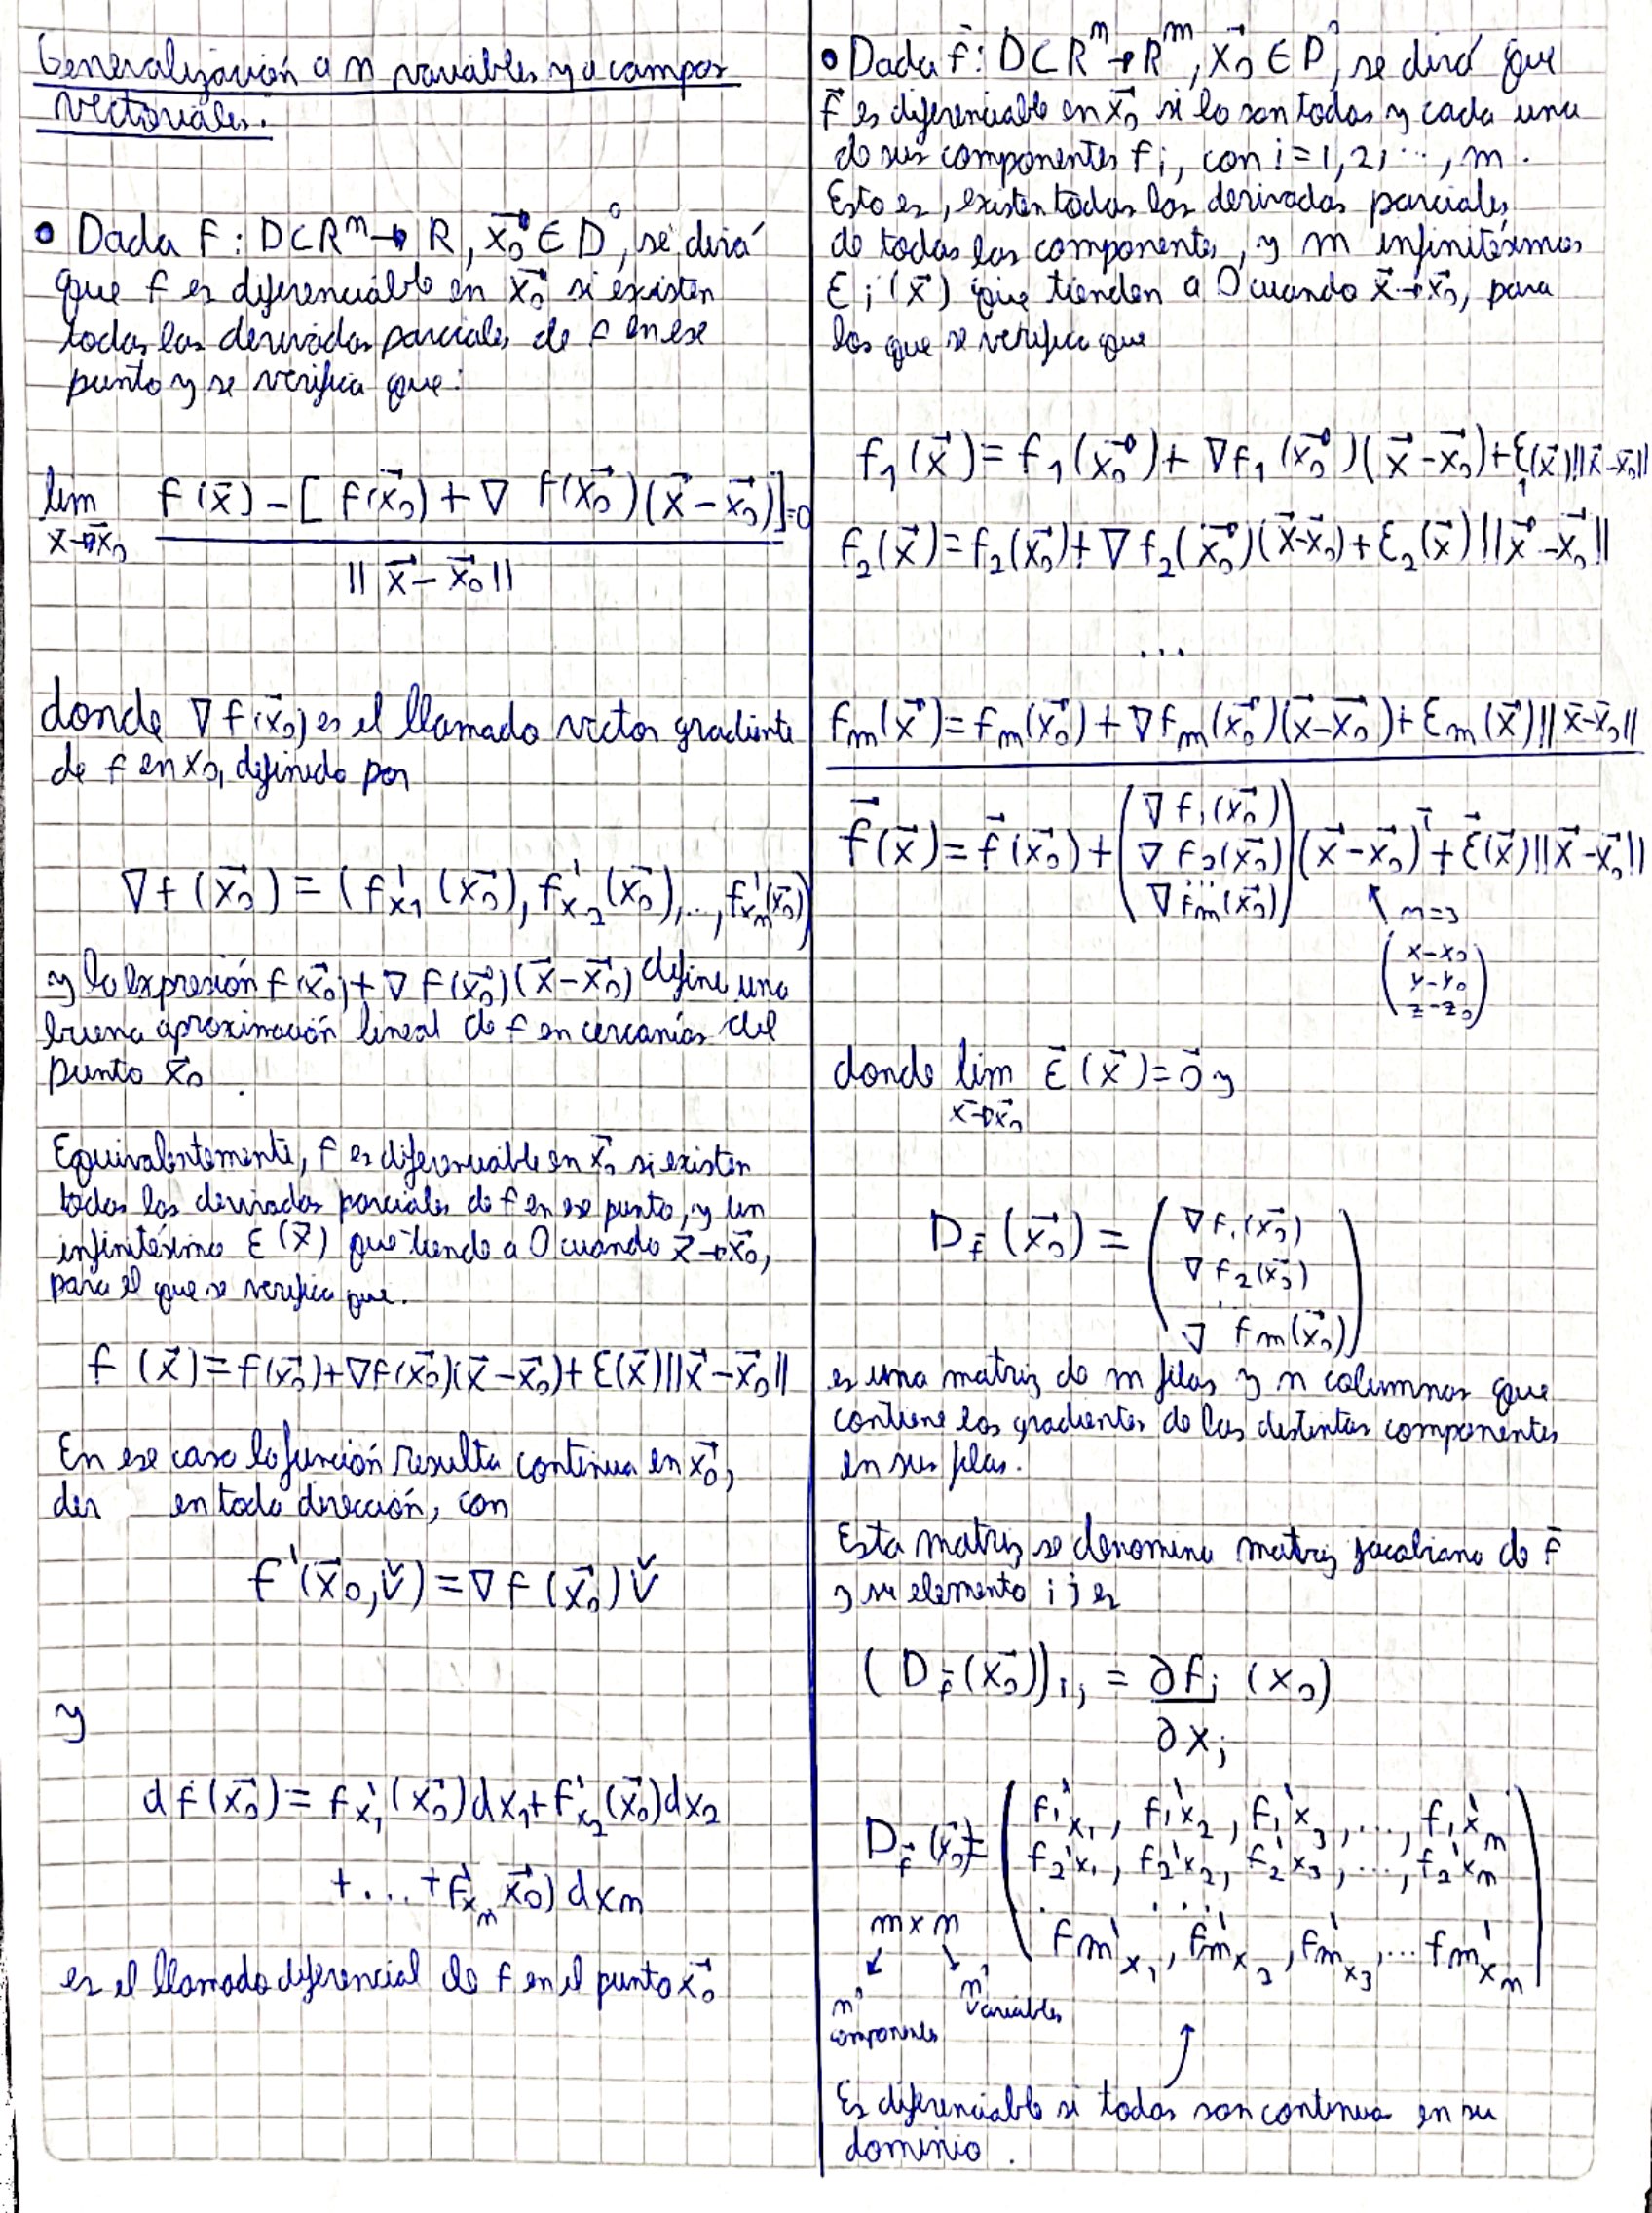 Generalización a n variables y a campos
vectoriales.
• Dada f: D⊂Rⁿ→R, x₀⃗ ∈ D°, se dirá
que f es diferenciable en x₀⃗ si existen
todas las derivadas parciales de f en ese
punto y se verifica que:
lim f(x̄) - [f(x₀⃗) + ∇ f(x₀⃗)(x⃗ - x₀⃗)] = 0
x→x₀ ||x⃗ - x₀⃗||
donde ∇f(x₀⃗) es el llamado vector gradiente
de f en x₀, definido por
∇f(x₀⃗) = (f'x₁(x₀⃗), f'x₂(x₀⃗), ..., f'xₙ(x₀⃗))
y la expresión f(x₀⃗) + ∇f(x₀⃗)(x⃗ - x₀⃗) define una
buena aproximación lineal de f en cercanías del
punto x₀⃗.
Equivalentemente, f es diferenciable en x₀⃗ si existen
todas las derivadas parciales de f en ese punto, y un
infinitésimo ε(x⃗) que tiende a 0 cuando x⃗→x₀⃗,
para el que se verifica que.
f(x⃗) = f(x₀⃗) + ∇f(x₀⃗)(x⃗ - x₀⃗) + ε(x⃗)||x⃗ - x₀⃗||
En ese caso la función resulta continua en x₀⃗,
der en toda dirección, con
f'(x⃗₀, v̌) = ∇f(x₀⃗) v̌
y
df(x₀⃗) = f'x₁(x₀⃗)dx₁ + f'x₂(x₀⃗)dx₂
+ ... + f'xₙ x₀⃗) dxn
es el llamado diferencial de f en el punto x₀⃗
• Dada f̄: D⊂Rⁿ→Rᵐ, x₀⃗ ∈ D°, se dirá que
f⃗ es diferenciable en x₀⃗ si lo son todas y cada una
de sus componentes fi, con i=1,2,..., m.
Esto es, existen todas las derivadas parciales
de todas las componentes, y m infinitésimos
εi(x⃗) que tienden a 0 cuando x⃗→x₀⃗, para
los que se verifica que
f₁(x⃗) = f₁(x₀⃗) + ∇f₁(x₀⃗)(x⃗ - x₀⃗) + ε₁(x⃗)||x⃗ - x₀⃗||
f₂(x⃗) = f₂(x₀⃗) + ∇f₂(x₀⃗)(x⃗ - x₀⃗) + ε₂(x⃗)||x⃗ - x₀⃗||
...
fm(x⃗) = fm(x₀⃗) + ∇fm(x₀⃗)(x⃗ - x₀⃗) + εm(x⃗)||x̄ - x̄₀||
∇f₁(x₀⃗)
f⃗(x⃗) = f⃗(x₀⃗) + (∇f₂(x₀⃗)) (x⃗ - x₀⃗)ᵀ + ε⃗(x⃗)||x⃗ - x₀⃗||
...
∇fm(x₀⃗)
↖ n=3
x-x₀
y-y₀
z-z₀
donde lim ε̄(x⃗) = 0⃗ y
x→x₀
D f̄ (x₀⃗) = ( ∇f₁(x₀⃗)
∇f₂(x₀⃗)
⋮
∇ fm(x₀⃗) )
es una matriz de m filas y n columnas que
contiene los gradientes de las distintas componentes
en sus filas.
Esta matriz se denomina matriz jacobiana de f̄
y su elemento ij es
(D f̄ (x₀⃗))ij = ∂fi (x₀)
∂xj
f₁'x₁, f₁'x₂, f₁'x₃, ..., f₁'xn
D f̄ (x₀⃗) = f₂'x₁, f₂'x₂, f₂'x₃, ..., f₂'xn
. . . .
fm'x₁, fm'x₂, fm'x₃, ... fm'xn
m x n
↙ ↘
n° n°
componentes variables
Es diferenciable si todas son continuas en su
dominio.